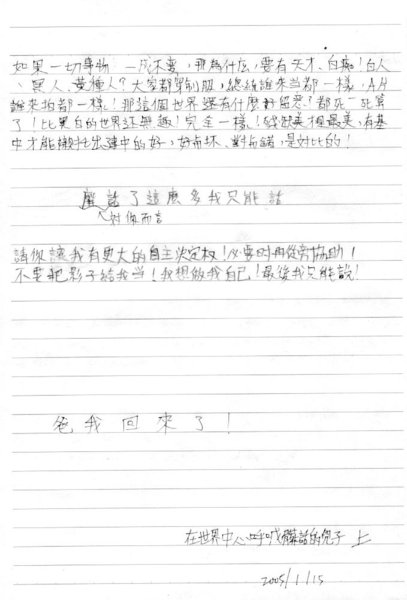 如果一切事物 一成不變,那為什么,要有天才、白痴!白人
、黑人、黃種人?大家都穿制服,總統誰來當都一樣,AA片
誰來拍都一樣!那這個世界還有什麼好留戀?都死一死算
了!比黑白的世界还無趣!完全一樣!殘缺美才裡最美,有基
中才能襯托出建中的好,好有坏、對有錯,是对比的!
廢話了這麼多我只能話
对你而言
請你讓我有更大的自主決定权!必要时再從旁协助!
不要把影子給我当!我想做我自己!最後我只能說!
爸我回來了!
在世界中心呼喊廢話的兒子 上
2005/1/15